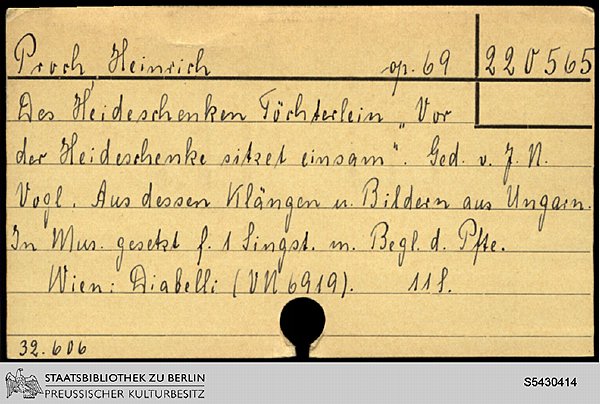 Proch Heinrich op. 69 220565
Des Heideschenken Töchterlein „Vor
der Heideschenke sitzet einsam". Ged. v. J. N.
Vogl. Aus dessen Klängen u. Bildern aus Ungarn.
In Mus. gesetzt f. 1 Singst. m. Begl. d. Pfte.
Wien: Diabelli (VN 6919). 11 S.
32.606
STAATSBIBLIOTHEK ZU BERLIN
PREUSSISCHER KULTURBESITZ
S5430414